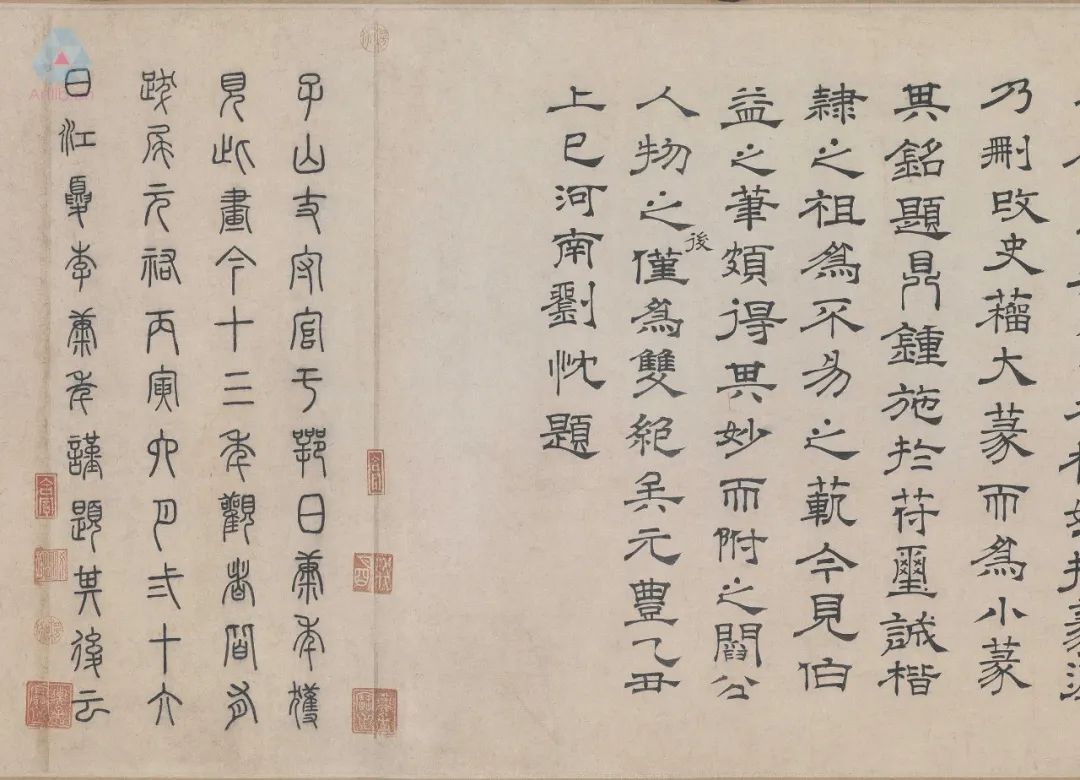 乃刪改史籀大篆而為小篆
其銘題鼎鍾施於符璽誠楷
隸之祖為不易之範今見伯
益之筆頗得其妙而附之閻公
人物之後僅為雙絕矣元豐乙丑
上巳河南劉忱題
子山守官于鄂日康年獲
見此畫今十三年觀者間有
跋尾元祐丙寅六月弍十六
日江夏李康年謹題其後云